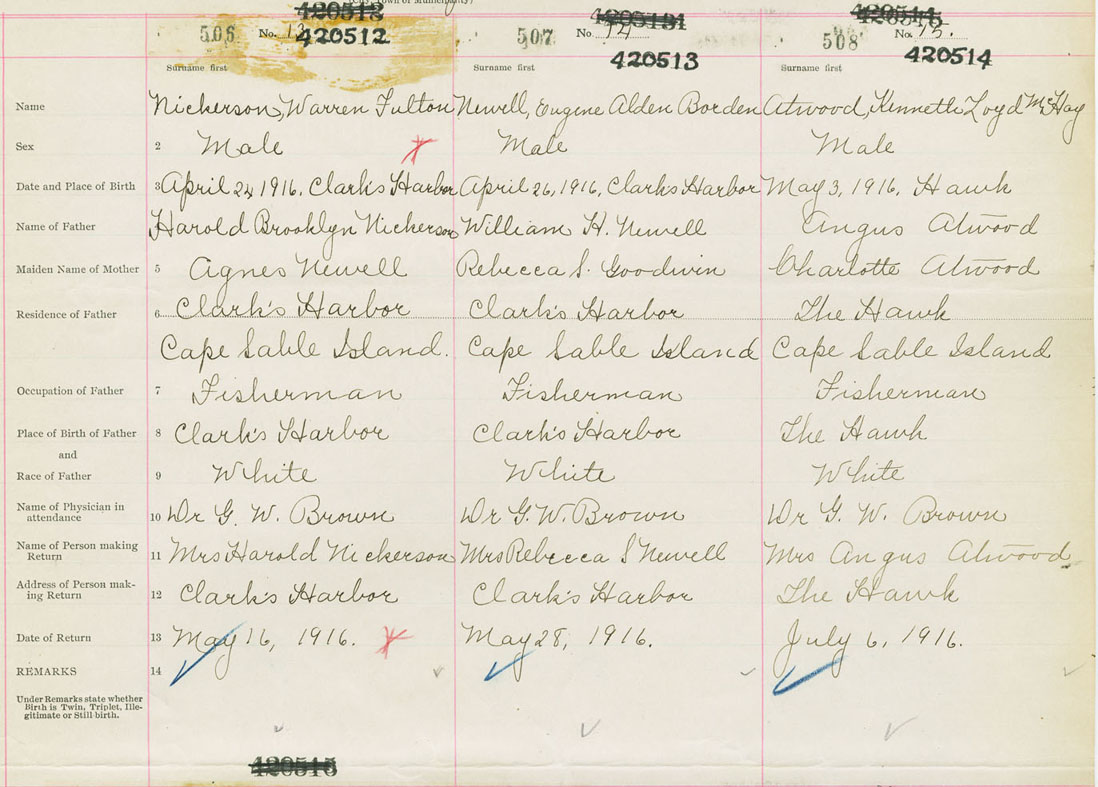 506 No. 13 420512 507 No. 14 420513 508 No. 15. 420514
Surname first Surname first Surname first
Name Nickerson, Warren Fulton Newell, Eugene Alden Borden Atwood, Kenneth Loyd McHay
Sex 2 Male Male Male
Date and Place of Birth 3 April 24, 1916, Clark's Harbor April 26, 1916, Clark's Harbor May 3, 1916, Hawk
Name of Father Harold Brooklyn Nickerson William H. Newell Angus Atwood
Maiden Name of Mother 5 Agnes Newell Rebecca S. Goodwin Charlotte Atwood
Residence of Father 6 Clark's Harbor Clark's Harbor The Hawk
Cape Sable Island. Cape Sable Island Cape Sable Island
Occupation of Father 7 Fisherman Fisherman Fisherman
Place of Birth of Father 8 Clark's Harbor Clark's Harbor The Hawk
and
Race of Father 9 White White White
Name of Physician in
attendance 10 Dr G. W. Brown Dr G. W. Brown Dr G. W. Brown
Name of Person making
Return 11 Mrs Harold Nickerson Mrs Rebecca S Newell Mrs Angus Atwood
Address of Person mak-
ing Return 12 Clark's Harbor Clark's Harbor The Hawk
Date of Return 13 May 16, 1916. May 28, 1916. July 6, 1916.
REMARKS 14
Under Remarks state whether
Birth is Twin, Triplet, Ille-
gitimate or Still-birth.